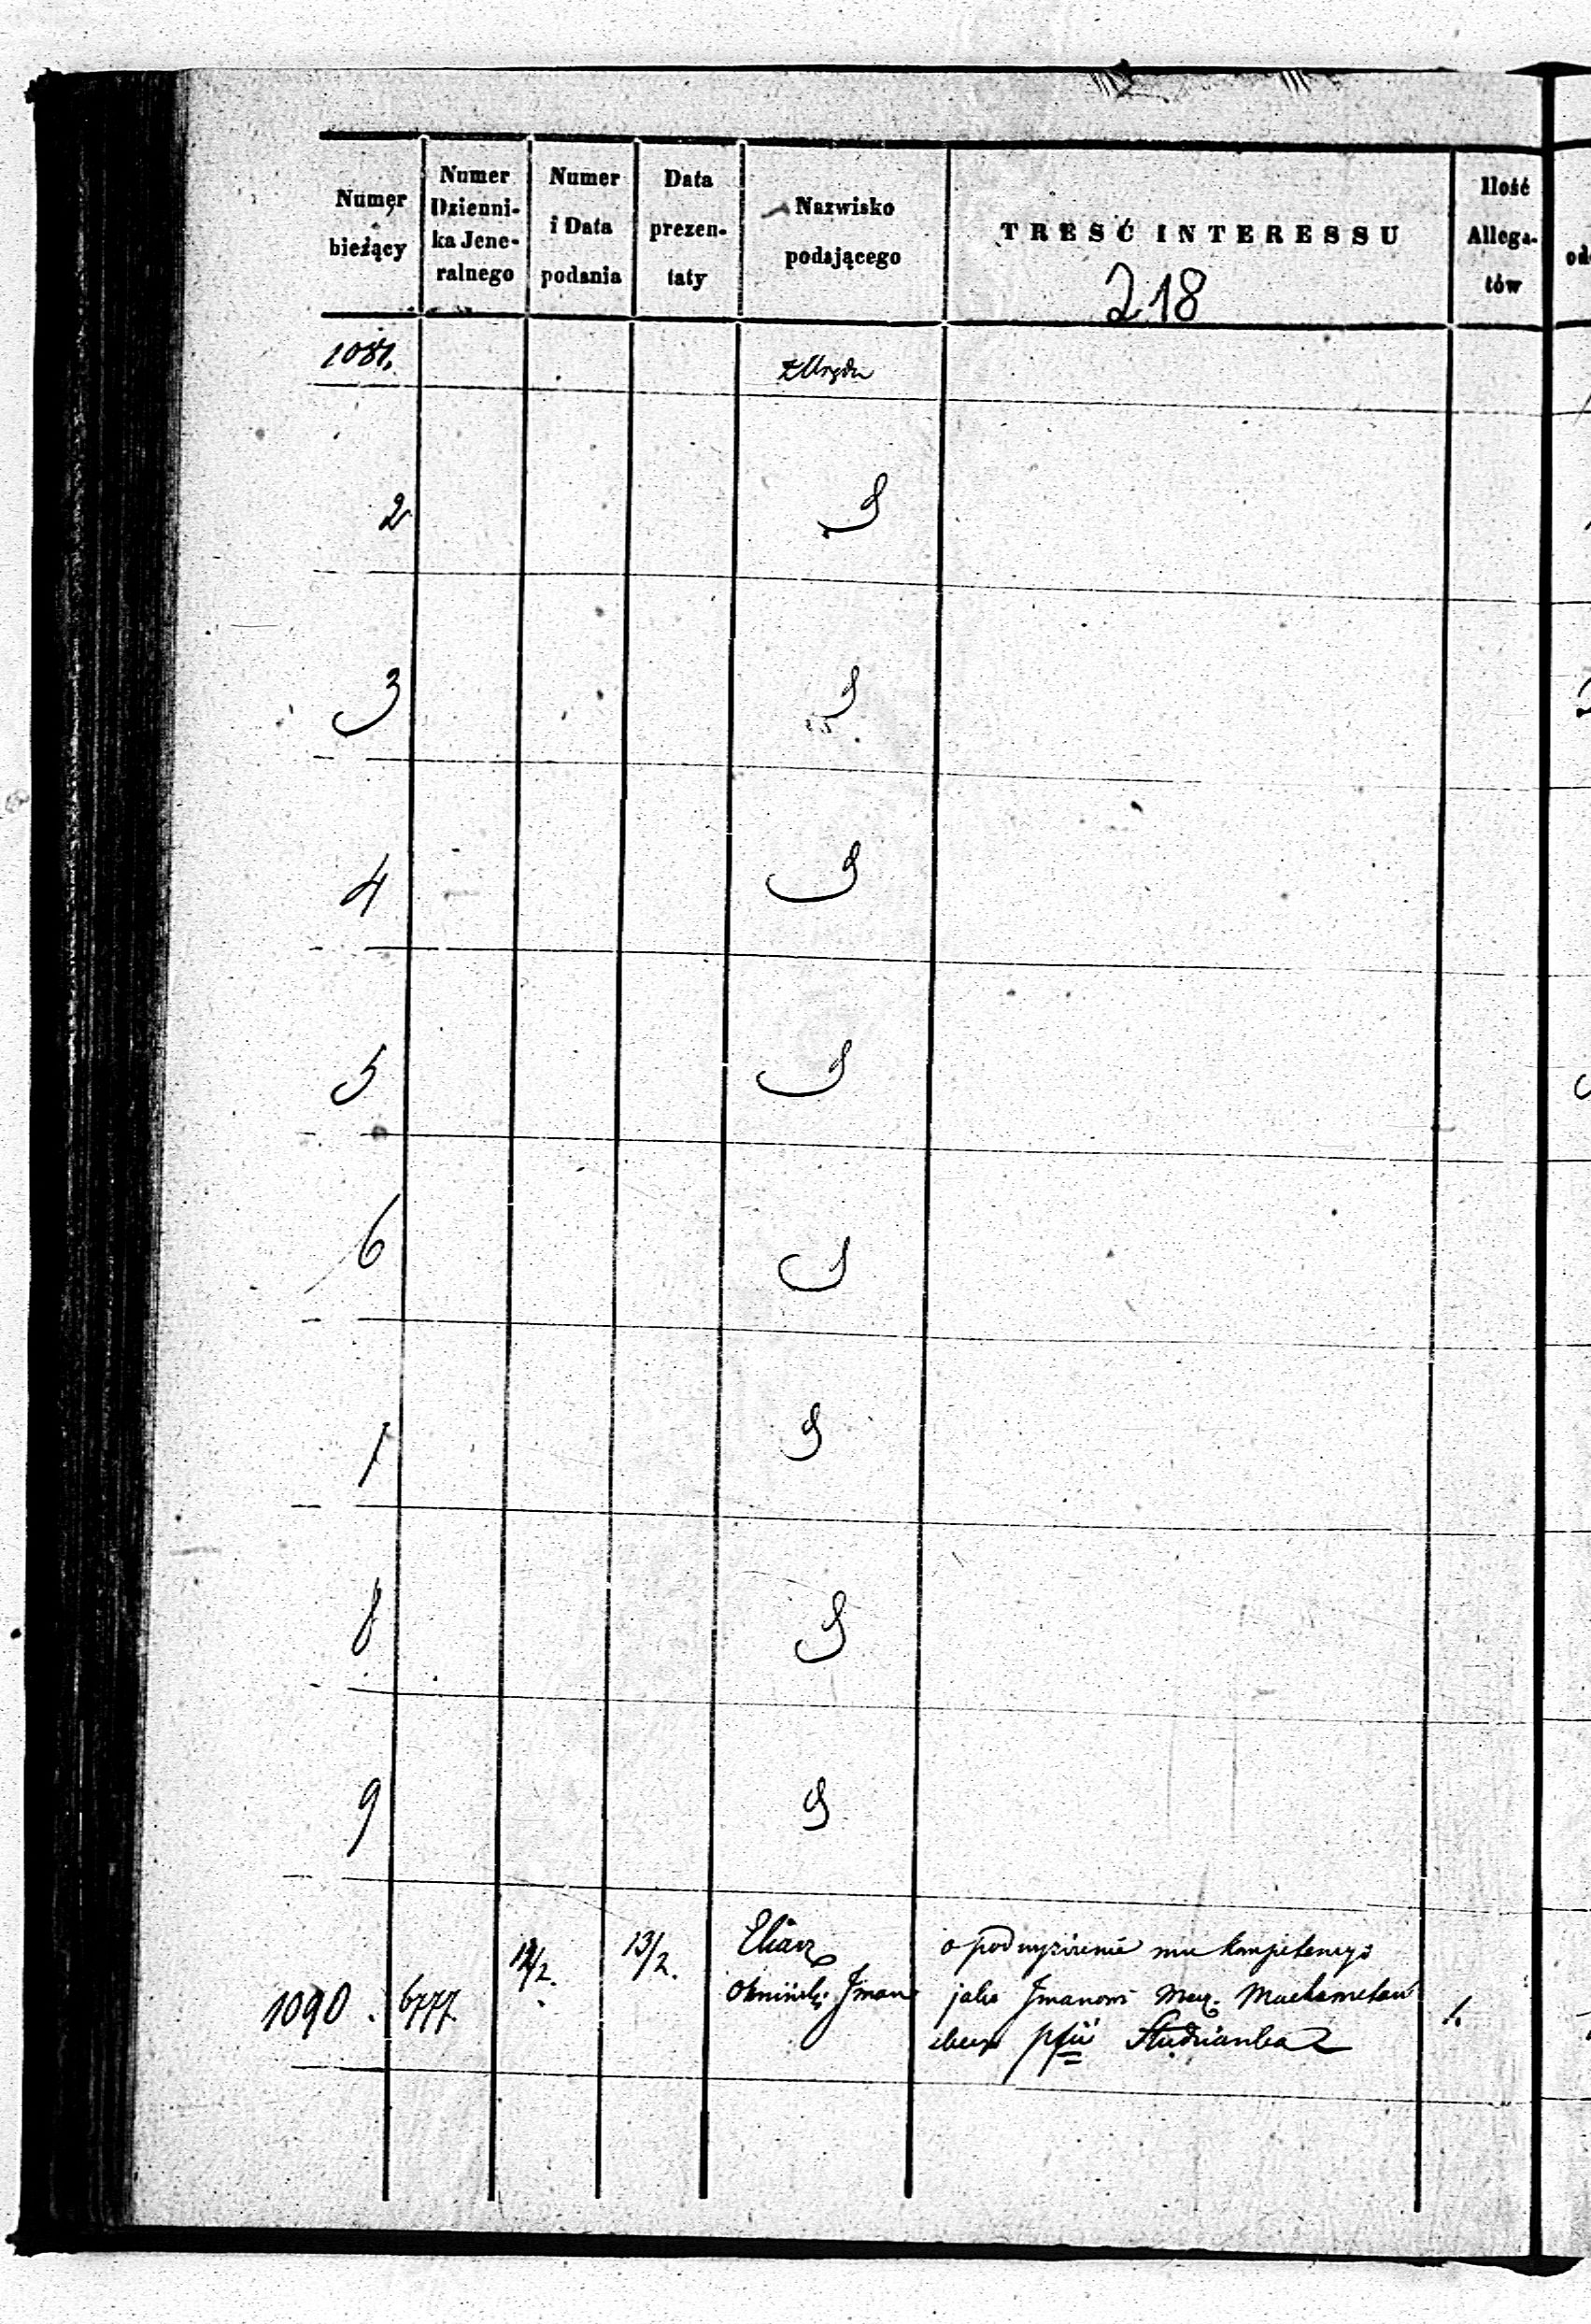 Numer bieżący
Numer Dzienni- ka Jene- ralnego
Numer i Data podania
Data prezen- taty
Nazwisko podającego
TREŚĆ INTERESSU
Ilość Allega- tów
218
1081. z Urzędu
2
3
4
5
6
7
8
9
1090. 6777 12/2. 13/2. Eliasz o podwyższenie mu kompetencyi
Iman jako Imanowi Machometań
Studzianka 1.